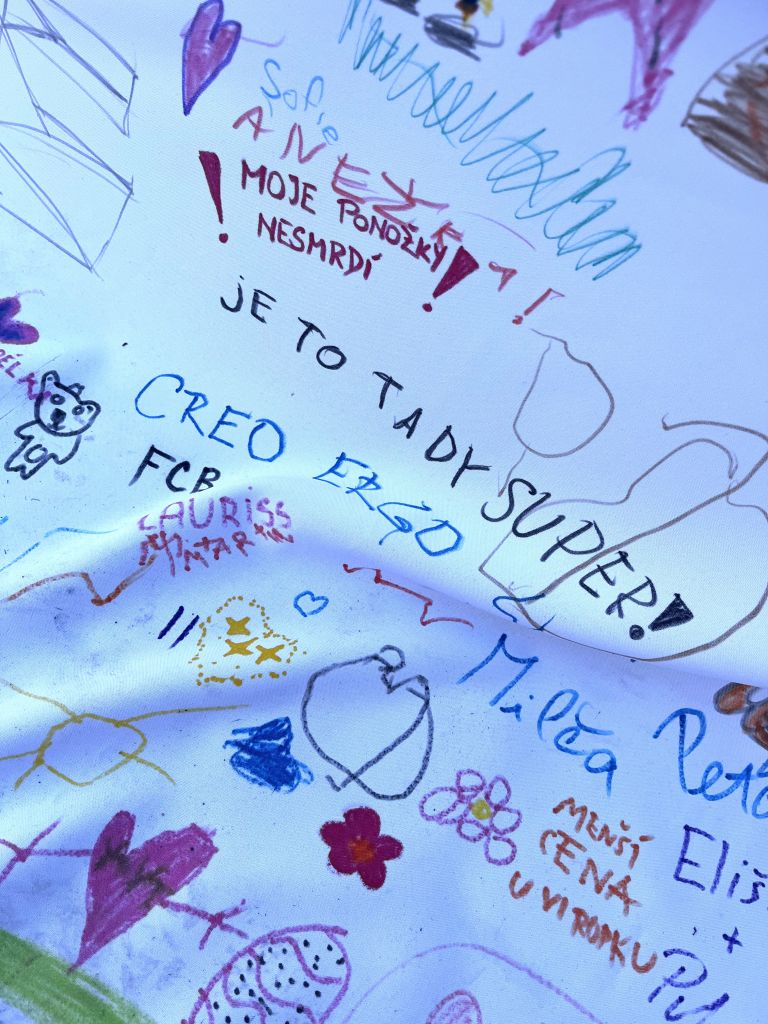 Sofie
ANEŽKA!
! MOJE PONOŽKY
NESMRDÍ !
JE TO TADY SUPER!
CREO ERGO
FCB
LAURISS
Milča
MENŠÍ
CENA
U VÝROPKU
Eliš
+